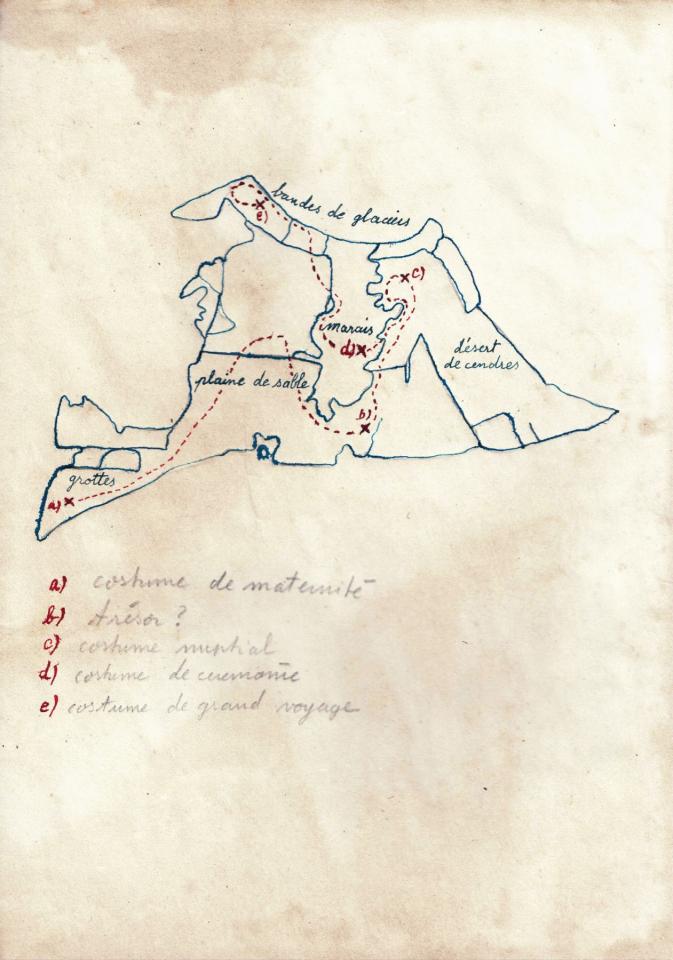 bandes de glaciers
e)
c)
marais
d)
désert
de cendres
plaine de sable
b)
grottes
a)
a) costume de maternité
b) trésor ?
c) costume nuptial
d) costume de ceremonie
e) costume de grand voyage